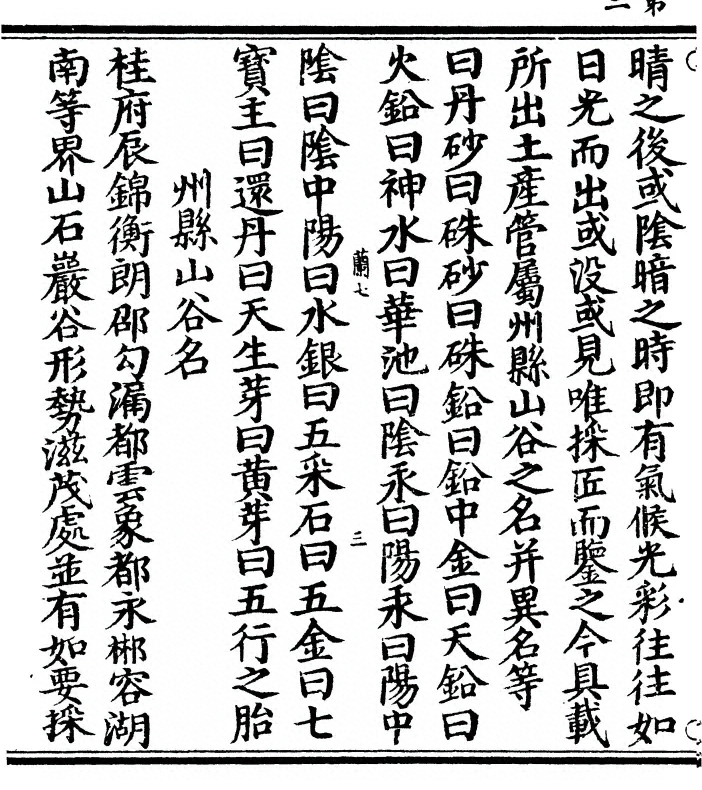 晴之後或陰暗之時即有氣候光彩往往如
日光而出或没或見唯採匠而鑒之今具載
所出土産管屬州縣山谷之名并異名等
曰丹砂曰硃砂曰硃鉛曰鉛中金曰天鉛曰
火鉛曰神水曰華池曰陰汞曰陽汞曰陽中
蘭七
三
陰曰陰中陽曰水銀曰五采石曰五金曰七
寶主曰還丹曰天生芽曰黄芽曰五行之胎
州縣山谷名
桂府辰錦衡朗邵勾漏都雲象都永郴容湖
南等界山石巖谷形勢滋茂處並有如要採